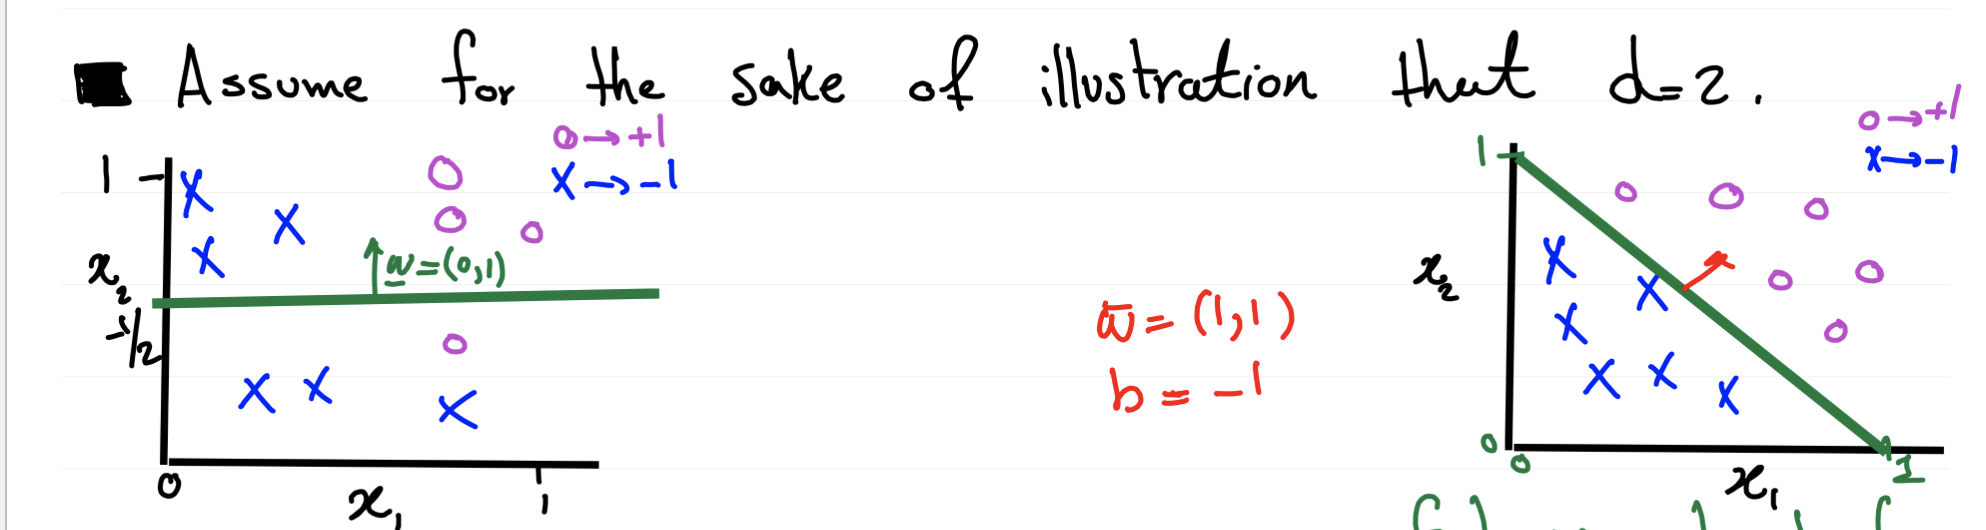 ■ Assume for the sake of illustration that d=2.
o → +1
x → -1
1
x₂
1/2
w=(0,1)
0
x₁
1
w̄ = (1,1)
b = -1
o → +1
x → -1
1
x₂
0
0
x₁
1